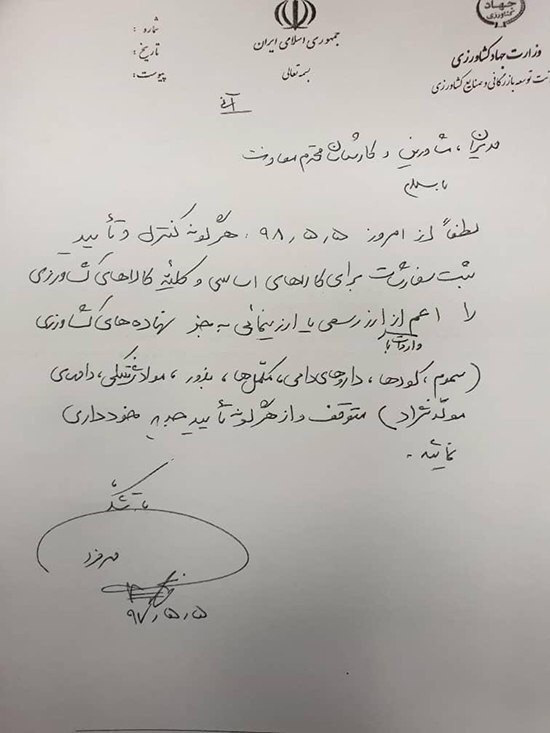 جهاد
کشاورزی
وزارت جهاد کشاورزی
ونت توسعه بازرگانی و صنایع کشاورزی
جمهوری اسلامی ایران
بسمه تعالی
شماره :
تاریخ :
پیوست :
آنی
مدیران، مشاورین و کارشناسان محترم معاونت
باسلام
لطفاً از امروز ۹۸٫۵٫۵، هرگونه کنترل و تأیید
ثبت سفارشات برای کالاهای اساسی و کلیه کالاهای کشاورزی
را اعم از ارز رسمی یا ارز نیمائی به جز نهاده‌های کشاورزی
واردات با
(سموم، کودها، داروهای دامی، مکمل‌ها، بذور، مواد ژنتیکی، دامهای
مولد نژاد) متوقف و از هرگونه تأیید جدید خودداری
نمائید.
با تشکر
مهرفرد
۹۷٫۵٫۵